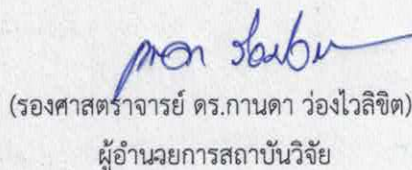 (รองศาสตราจารย์ ดร.กานดา ว่องไวลิขิต)
ผู้อำนวยการสถาบันวิจัย